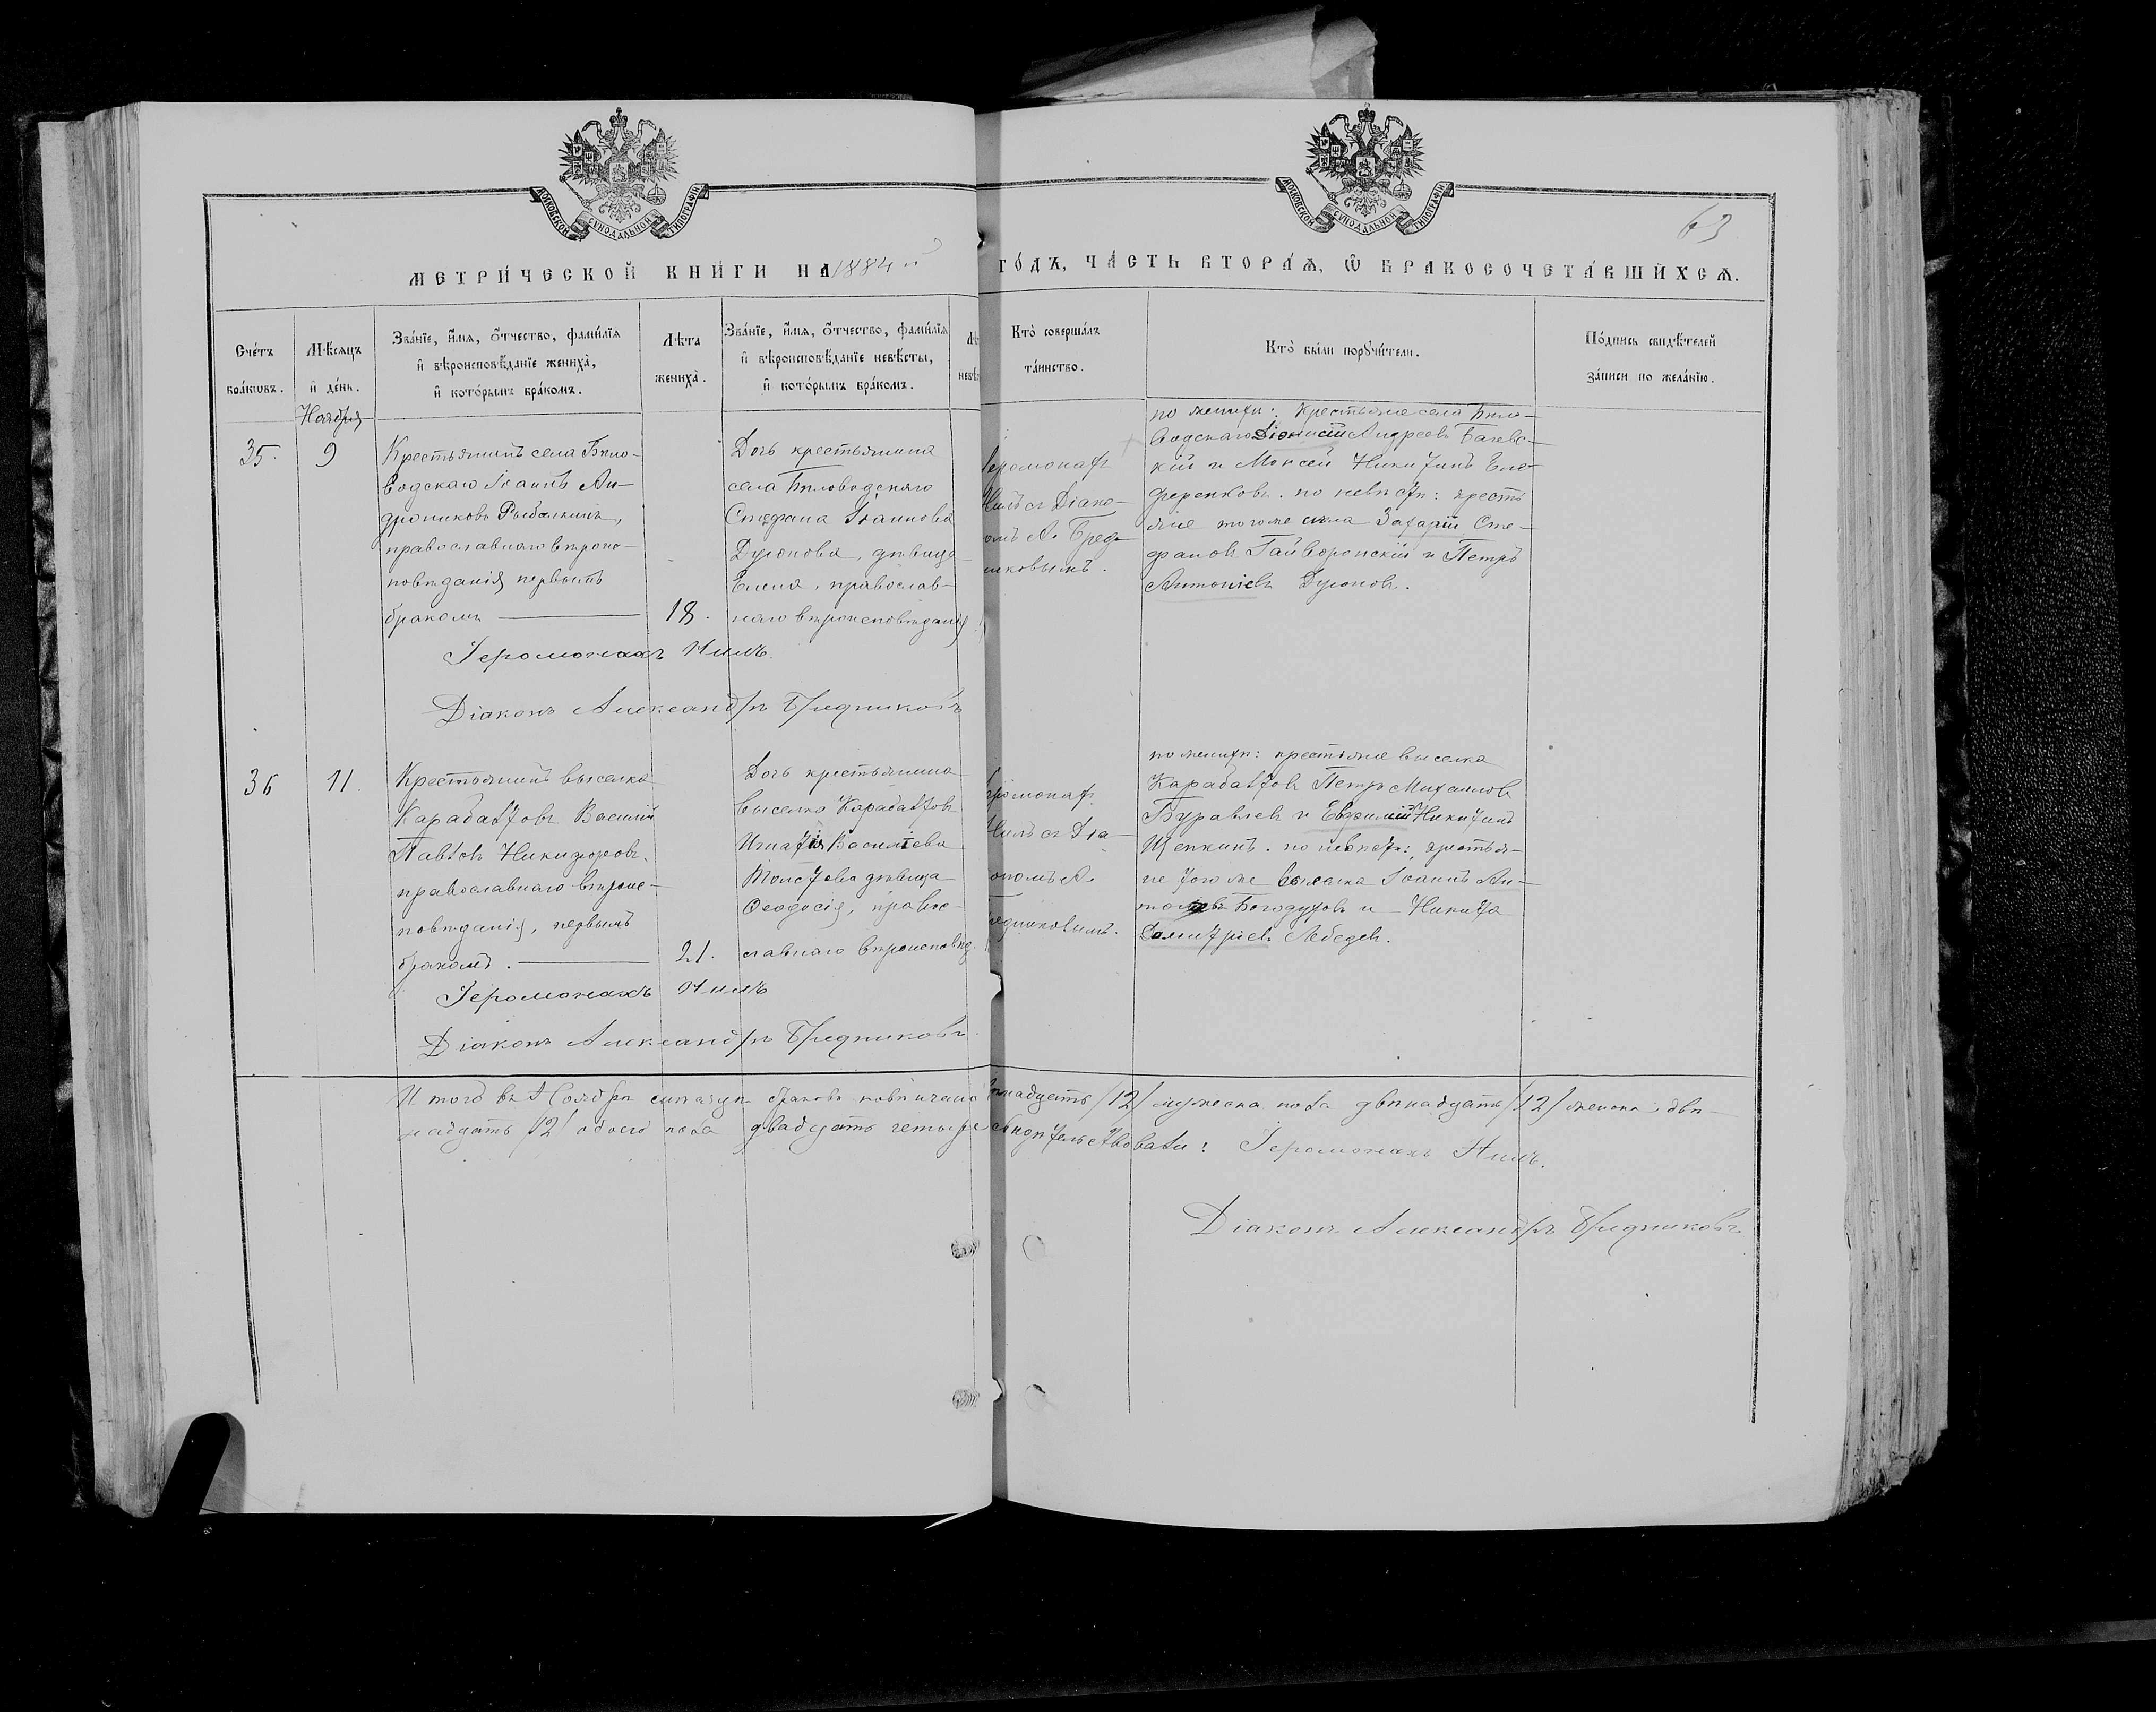 МОСКОВСКОЙ СѴНОДАЛЬНОЙ ТИПОГРАФІИ
МОСКОВСКОЙ СѴНОДАЛЬНОЙ ТИПОГРАФІИ
63
МЕТРИ́ЧЕСКОЙ КНИ́ГИ НА 1884 й
ГО́ДЪ, ЧА́СТЬ ВТОРА́Я, Ѡ БРАКОСОЧЕТА́ВШИХСЯ.
Сче́тъ бра́ковъ.
Мѣ́сяцъ и де́нь.
Зва́нїе, и́мя, о́тчество, фами́лїя
и вѣроисповѣ́данїе жениха̀,
и кото́рымъ бра́комъ.
Лѣ́та жениха̀.
Зва́нїе, и́мя, о́тчество, фами́лїя
и вѣроисповѣ́данїе невѣ́сты,
и кото́рымъ бра́комъ.
Кто̀ соверша́лъ
та́инство.
Кто̀ бы́ли пору́чители.
По́дпись свидѣ́телей
за́писи по жела́нїю.
Ноября
35.
9
Крестьянинъ села Бѣло-
водскаго Іоаннъ Ан-
дрониковъ Рыбалкинъ,
православнаго вѣроис-
повѣданія первымъ
бракомъ
18.
Дочь крестьянина
села Бѣловодскаго
Стефана Іоаннова
девица
Елена, православ-
наго вѣроисповѣданія
Іеромонахъ
Нилъ съ Діако-
омъ А. Бред-
никовымъ.
по женихѣ: крестьяне села Бѣло-
водскаго Діонисій Андреевъ
и Моисей Никитинъ Еле-
ференковъ. по невѣстѣ: кресть
яне тогоже села Захарій Сте-
фановъ Гайворонскій и Петръ
Антоніевъ
Іеромонахъ Нилъ.
Діаконъ Александръ Бредниковъ
36
11.
Крестьянинъ выселка
Карабалтовъ Василій
Павловъ Никифоровъ,
православнаго вѣроис-
повѣданія, первымъ
бракомъ.
21.
Дочь крестьянина
выселка Карабалтовъ
Игнатія Василіева
Толстова девица
Ѳеодосія, право-
славнаго вѣроисповѣд.
еромонахъ
Нилъ съ Діа-
ономъ А.
редниковымъ.
по женихѣ: крестьяне выселка
Карабалтовъ Петръ Михаиловъ
Буравлевъ и Евфимій Никитинъ
Щепкинъ. по невѣстѣ: крестья-
не того же выселка Іоаннъ Ан-
Богодуховъ и Никита
Димитріевъ Лебедев.
Іеромонахъ Нилъ
Діаконъ Александръ Бредниковъ.
Итого въ Ноябрѣ мѣсяцѣ браковъ повѣнчано двѣнадцать /12/ мужеска пола двѣнадцать /12/ женска двѣ-
надцать /12/ обоего пола двадцать четыре свидѣтельствовали: Іеромонахъ Нилъ.
Діаконъ Александръ Бредниковъ